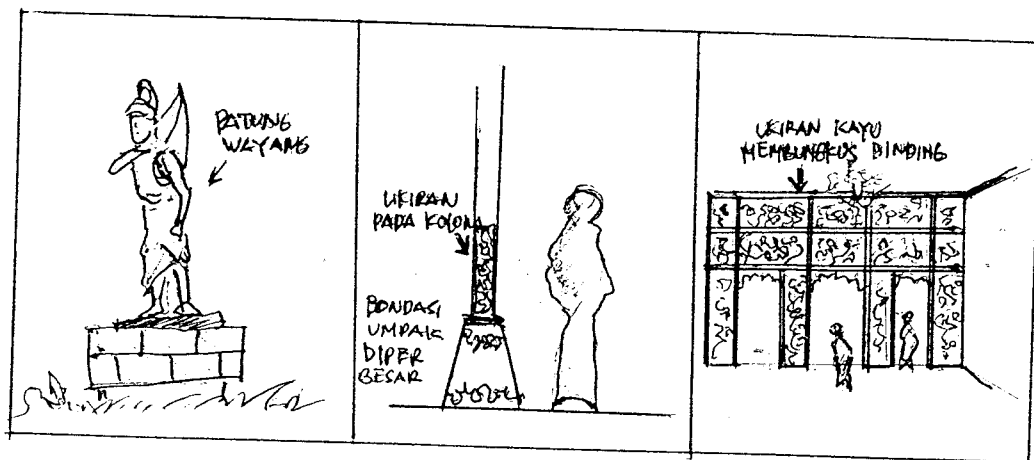 PATUNG
WAYANG
UKIRAN
PADA KOLOM
BONDASI
UMPAK
DIPER
BESAR
UKIRAN KAYU
MEMBUNGKUS DINDING